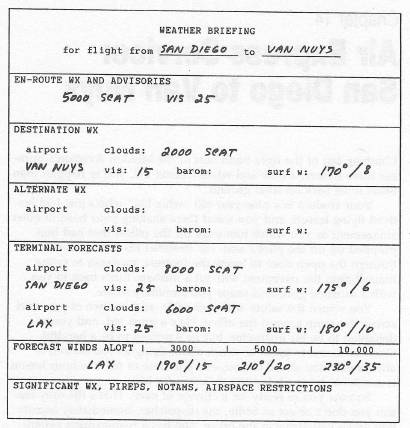 WEATHER BRIEFING
for flight from SAN DIEGO to VAN NUYS
EN-ROUTE WX AND ADVISORIES
5000 SCAT VIS 25
DESTINATION WX
airport clouds: 2000 SCAT
VAN NUYS vis: 15 barom: surf w: 170°/8
ALTERNATE WX
airport clouds:
vis: barom: surf w:
TERMINAL FORECASTS
airport clouds: 8000 SCAT
SAN DIEGO vis: 25 barom: surf w: 175°/6
airport clouds: 6000 SCAT
LAX vis: 25 barom: surf w: 180°/10
FORECAST WINDS ALOFT | 3000 | 5000 | 10,000
LAX 190°/15 210°/20 230°/35
SIGNIFICANT WX, PIREPS, NOTAMS, AIRSPACE RESTRICTIONS